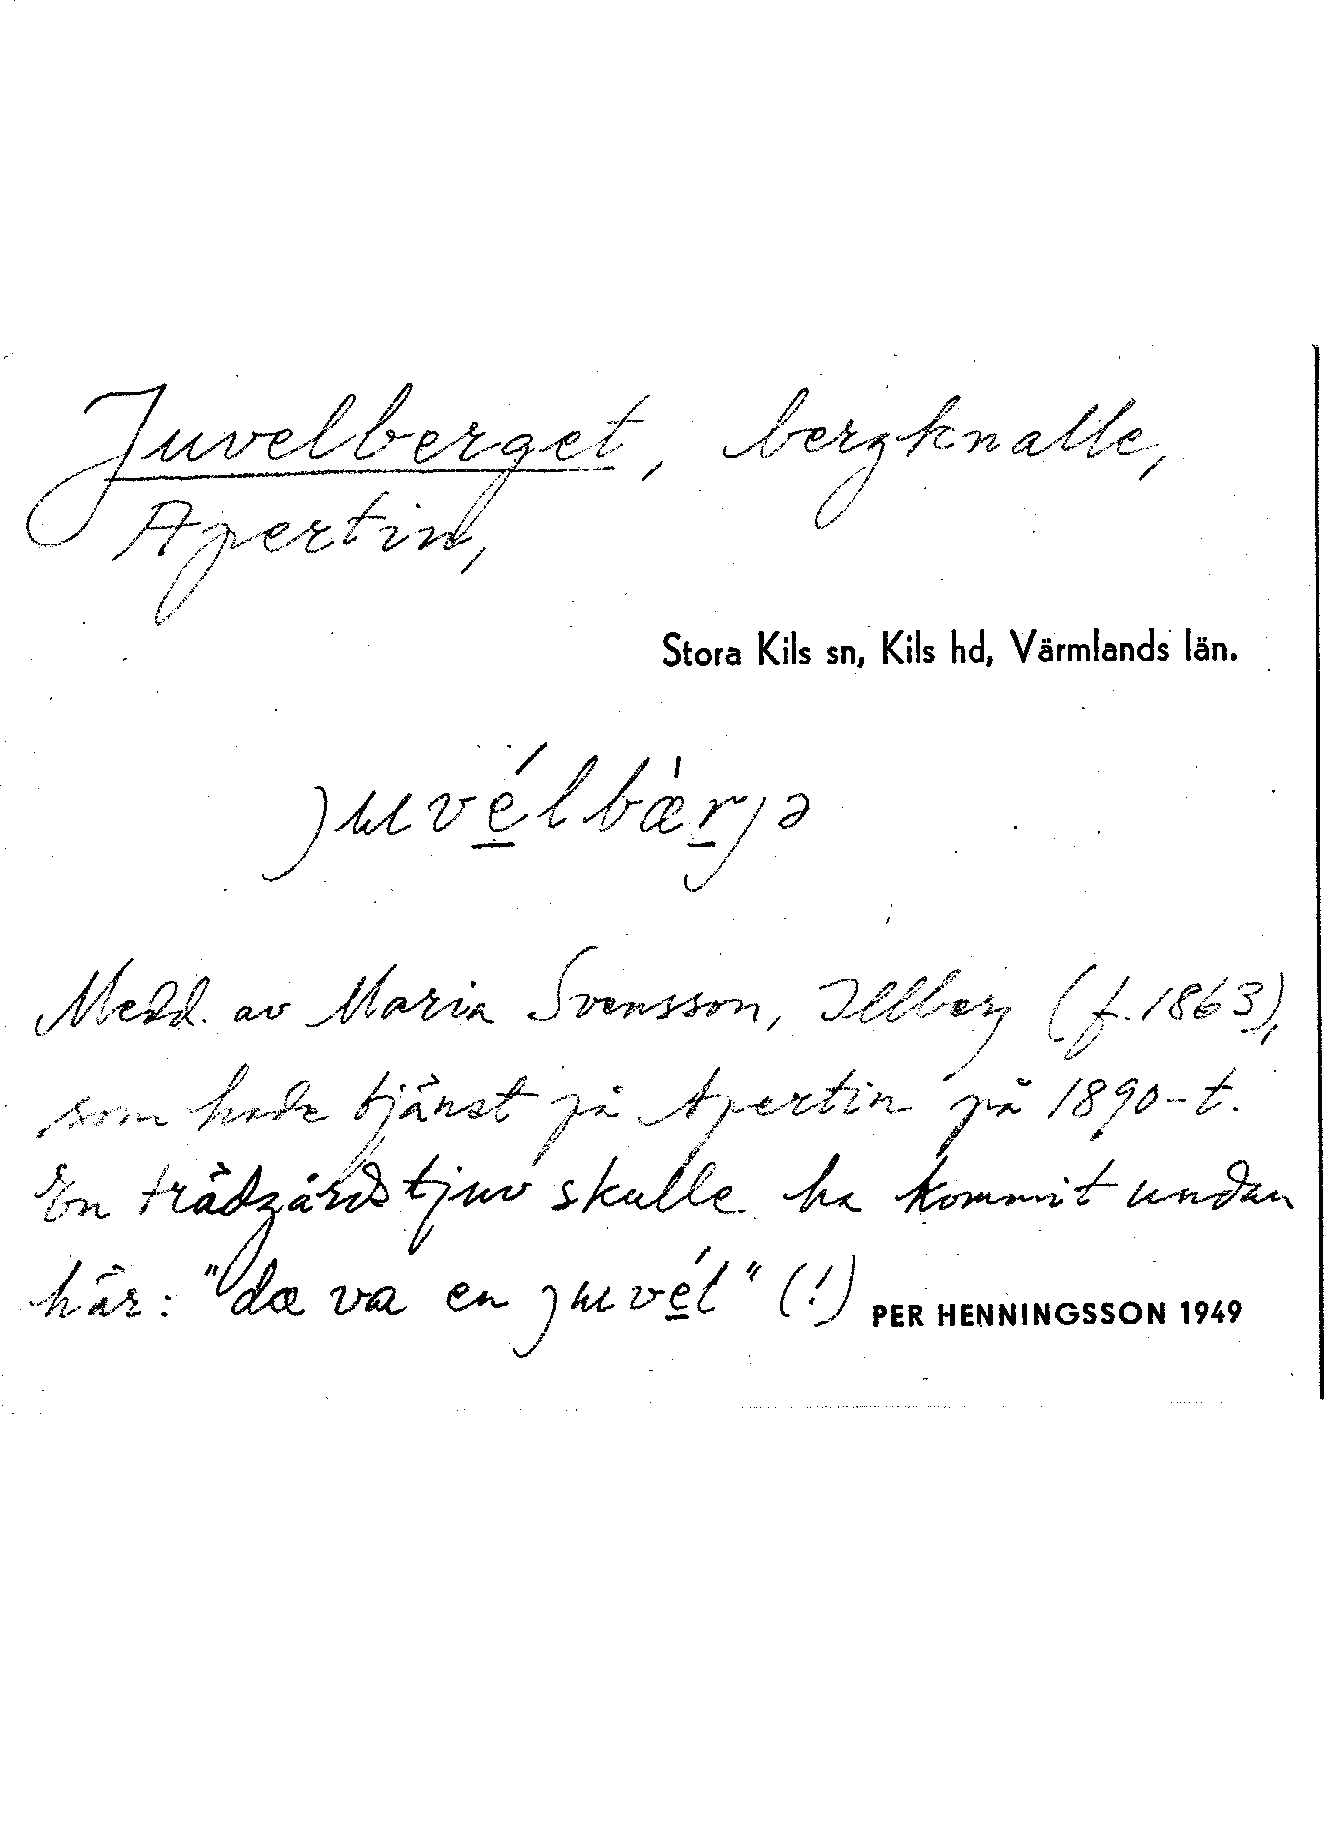 Juvelberget, bergknalle,
Apertin,
Stora Kils sn, Kils hd, Värmlands län.
juvélbæ̀rjə
Medd. av Maria Svensson, Illberg (f. 1863),
som hade tjänst på Apertin på 1890-t.
En trädgårdstjuv skulle ha kommit undan
här: "dæ va en juvél" (!)
PER HENNINGSSON 1949